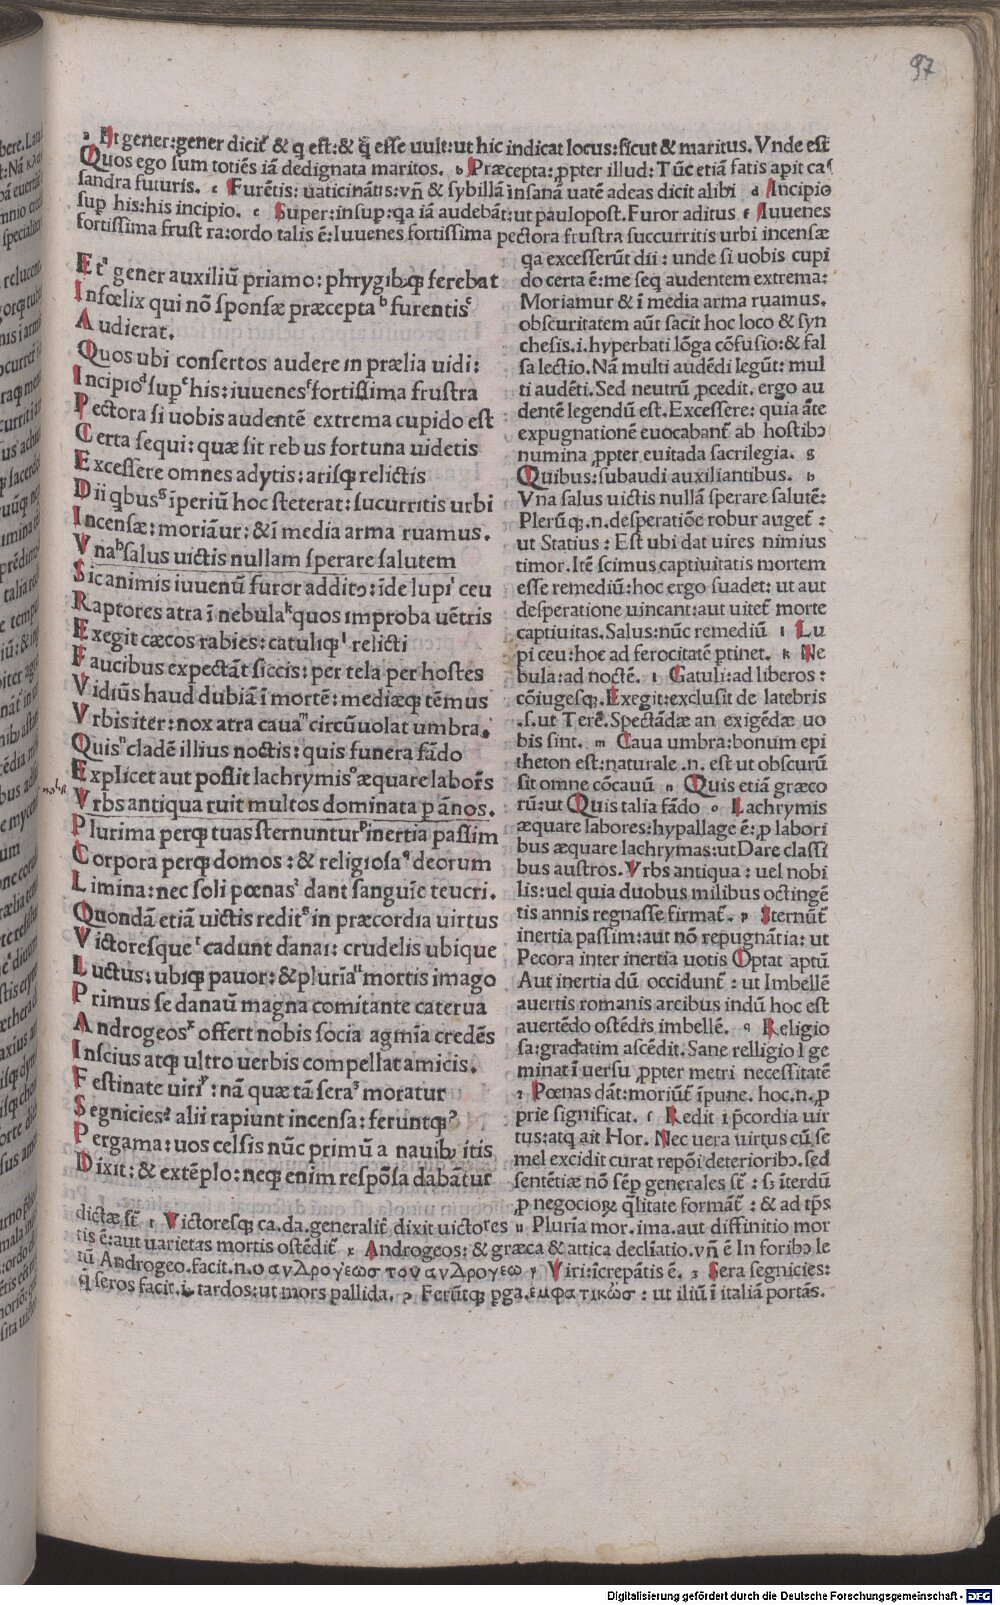 97
a Et gener:gener dicit᷑ & q est:& q̄ esse uult:ut hic indicat locus:sicut & maritus. Vnde est
Quos ego sum totiēs iā dedignata maritos. b Præcepta:ꝓpter illud:Tūc etiā fatis apit ca
sandra futuris. c Furētis: uaticinātis:vn̄ & sybillā insanā uatē adeas dicit alibi d Incipio
sup his:his incipio. e Super:insup:qa iā audebāt:ut paulopost.Furor aditus f Iuuenes
fortissima frust ra:ordo talis ē:Iuuenes fortissima pectora frustra succurritis urbi incensæ
Etᵃ gener auxiliū priamo: phrygibꝫq̨ ferebat
Infœlix qui nō sponsæ præceptaᵇ furentisᶜ
Audierat.
Quos ubi consertos audere in prælia uidi:
Incipioᵈ supᵉ his: iuuenesᶠ fortissima frustra
Pectora si uobis audentē extrema cupido est
Certa sequi: quæ sit reb us fortuna uidetis
Excessere omnes adytis: arisq̨ relictis
Dii qbusᵍ īperiū hoc steterat: sucurritis urbi
Incensæ: moriāur: & ī media arma ruamus.
Vnaʰ salus uictis nullam sperare salutem
Sic animis iuuenū furor additꝰ: īde lupiⁱ ceu
Raptores atra ī nebulaᵏ quos improba uētris
Exegit cæcos rabies: catuliq̨ˡ relicti
Faucibus expectāt siccis: per tela per hostes
Vidiūs haud dubiā ī mortē: mediæq̨ tēmus
Vrbis iter: nox atra cauaᵐ circūuolat umbra.
Quisⁿ cladē illius noctis: quis funera fādo
Explicet aut possit lachrymisᵒ æquare labor̄s
Vrbs antiqua ruit multos dominata p ānos.
Plurima perq̨ tuas sternunturᵖ inertia passim
Corpora perq̨ domos: & religiosaᑫ deorum
Limina: nec soli pœnasʳ dant sanguīe teucri.
Quondā etiā uictis reditˢ in præcordia uirtus
Victoresqueᵗ cadunt danai: crudelis ubique
Luctus: ubiq̨ pauor: & plurīaᵘ mortis imago
Primus se danaū magna comitante caterua
Androgeosˣ offert nobis socia agmīa credēs
Inscius atq̨ ultro uerbis compellat amicis.
Festinate uiriʸ: nā quæ tā seraᶻ moratur
Segnicies? alii rapiunt incensa: feruntq̨ꝰ
Pergama: uos celsis nūc primū a nauibꝫ itis
Dixit: & extēplo: neq̨ enim respōsa dabātur
qa excesserūt dii: unde si uobis cupi
do certa ē:me seq audentem extrema:
Moriamur & ī media arma ruamus.
obscuritatem aūt facit hoc loco & syn
chesis.i.hyperbati lōga cōfusio:& fal
sa lectio. Nā multi audēdi legūt: mul
ti audēti. Sed neutrū ꝓcedit. ergo au
dentē legendū est. Excessere: quia āte
expugnationē euocabant᷑ ab hostibꝰ
numina ꝓpter euitāda sacrilegia. g
Quibus:subaudi auxiliantibus. h
Vna salus uictis nullā sperare salutē:
Plerūq̨.n.desperatiōe robur auget᷑:
ut Statius: Est ubi dat uires nimius
timor. Itē scimus captiuitatis mortem
esse remediū:hoc ergo suadet: ut aut
desperatione uincant:aut uitet᷑ morte
captiuitas. Salus:nūc remediū i Lu
pi ceu:hoc ad ferocitatē ptinet. k Ne
bula:ad noctē. l Catuli:ad liberos:
cōiugesq̨. Exegit:exclusit de latebris
.s.ut Terē. Spectādæ an exigēdæ uo
bis sint. m Caua umbra:bonum epi
theton est:naturale .n. est ut obscurū
sit omne cōcauū n Quis etiā græco
rū:ut Quis talia fādo o Lachrymis
æquare labores:hypallage ē:ꝓ labori
bus æquare lachrymas:ut Dare classi
bus austros. Vrbs antiqua: uel nobi
lis:uel quia duobus milibus octingē
tis annis regnasse firmat᷑. p Sternūt᷑
inertia passim:aut nō repugnātia: ut
Pecora inter inertia uotis Optat aptū
Aut inertia dū occidunt᷑: ut Imbellē
auertis romanis arcibus indū hoc est
auertēdo ostēdis imbellē. q Religio
sa:gradatim ascēdit. Sane relligio l ge
minat ī uersu ꝓpter metri necessitatē
r Pœnas dāt:moriūt᷑ īpune. hoc.n.ꝓ
prie significat. s Redit i p̄cordia uir
tus:atq̨ ait Hor. Nec uera uirtus cū se
mel excidit curat repōi deterioribꝰ. sed
sentētiæ nō sēp generales st̄: sꝫ īterdū
ꝓ negocioꝝ q̄litate formāt᷑: & ad tp̄s
dictæ st̄ t Victoresq̨ ca.da.generalit᷑ dixit uictores u Plurīa mor.ima.aut diffinitio mor
tis ē:aut uarietas mortis ostēdit᷑ x Androgeos: & græca & attica declīatio.vn̄ ē In foribꝰ le
tū Androgeo.facit.n.ο ανδρογεωσ του ανδρογεω y Viri:īcrepātis ē. z Sera segnicies:
q̄ seros facit.i.tardos:ut mors pallida. ꝰ Ferūtq̨ pga.εμφατικωσ: ut iliū ī italiā portās.
Digitalisierung gefördert durch die Deutsche Forschungsgemeinschaft - DFG